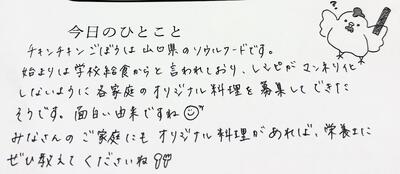 今日のひとこと
チキンチキンごぼうは山口県のソウルフードです。
始まりは学校給食からと言われており、レシピがマンネリ化
しないように各家庭のオリジナル料理を募集してできた
そうです。面白い由来ですね
みなさんのご家庭にもオリジナル料理があれば、栄養士に
ぜひ教えてくださいね
?